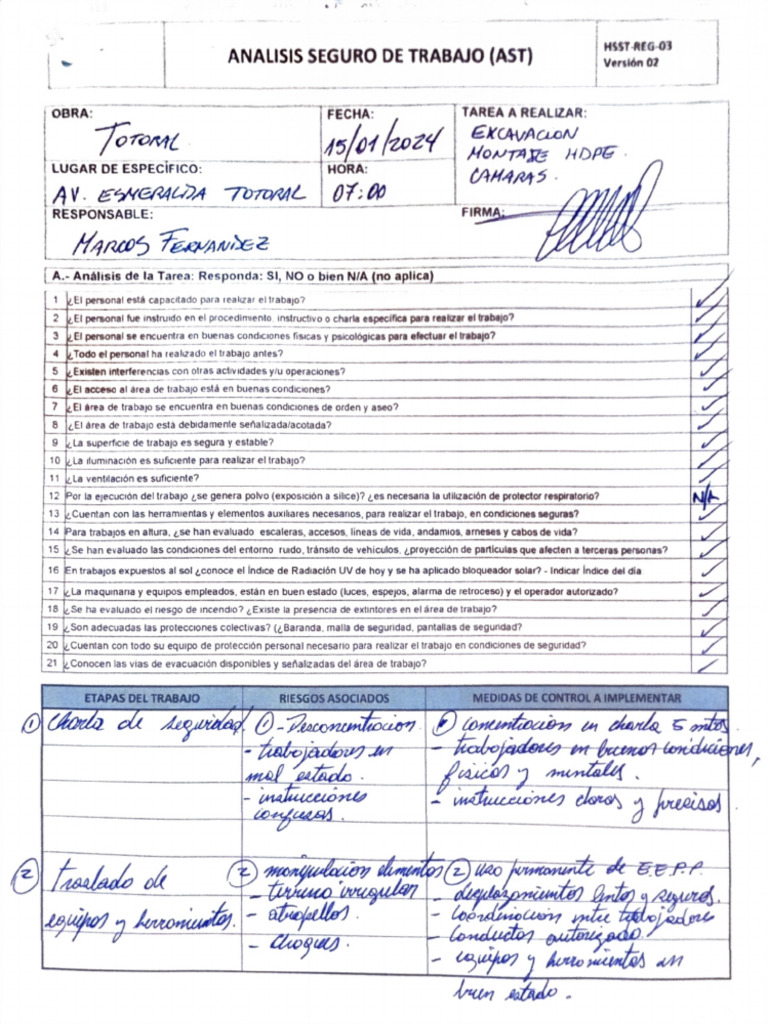 ANALISIS SEGURO DE TRABAJO (AST)
HSST-REG-03
Versión 02
OBRA:
TOTORAL
FECHA:
15/01/2024
TAREA A REALIZAR:
EXCAVACION
MONTAJE HDPE.
CAMARAS.
LUGAR DE ESPECÍFICO:
AV. ESMERALDA TOTORAL
HORA:
07:00
RESPONSABLE:
MARCOS FERNANDEZ
FIRMA:
A.- Análisis de la Tarea: Responda: SI, NO o bien N/A (no aplica)
1 ¿El personal está capacitado para realizar el trabajo? ✓
2 ¿El personal fue instruido en el procedimiento, instructivo o charla específica para realizar el trabajo? ✓
3 ¿El personal se encuentra en buenas condiciones físicas y psicológicas para efectuar el trabajo? ✓
4 ¿Todo el personal ha realizado el trabajo antes? ✓
5 ¿Existen interferencias con otras actividades y/u operaciones? ✓
6 ¿El acceso al área de trabajo está en buenas condiciones? ✓
7 ¿El área de trabajo se encuentra en buenas condiciones de orden y aseo? ✓
8 ¿El área de trabajo está debidamente señalizada/acotada? ✓
9 ¿La superficie de trabajo es segura y estable? ✓
10 ¿La iluminación es suficiente para realizar el trabajo? ✓
11 ¿La ventilación es suficiente? ✓
12 Por la ejecución del trabajo ¿se genera polvo (exposición a sílice)? ¿es necesaria la utilización de protector respiratorio? N/A
13 ¿Cuentan con las herramientas y elementos auxiliares necesarios, para realizar el trabajo, en condiciones seguras? ✓
14 Para trabajos en altura, ¿se han evaluado escaleras, accesos, líneas de vida, andamios, arneses y cabos de vida? ✓
15 ¿Se han evaluado las condiciones del entorno ruido, tránsito de vehículos, ¿proyección de partículas que afecten a terceras personas? ✓
16 En trabajos expuestos al sol ¿conoce el Índice de Radiación UV de hoy y se ha aplicado bloqueador solar? - Indicar Índice del día ✓
17 ¿La maquinaria y equipos empleados, están en buen estado (luces, espejos, alarma de retroceso) y el operador autorizado? ✓
18 ¿Se ha evaluado el riesgo de incendio? ¿Existe la presencia de extintores en el área de trabajo? ✓
19 ¿Son adecuadas las protecciones colectivas? (¿Baranda, malla de seguridad, pantallas de seguridad? ✓
20 ¿Cuentan con todo su equipo de protección personal necesario para realizar el trabajo en condiciones de seguridad? ✓
21 ¿Conocen las vías de evacuación disponibles y señalizadas del área de trabajo? ✓
ETAPAS DEL TRABAJO
RIESGOS ASOCIADOS
MEDIDAS DE CONTROL A IMPLEMENTAR
① Charla de seguridad.
① - Desconcentracion.
- trabajadores en
mal estado.
- instrucciones
confusas.
① concentracion en charla 5 mtos.
- trabajadores en buenos condiciones,
físicos y mentales.
- instrucciones claras y precisas
② Traslado de
equipos y herramientas.
② manipulacion elementos
- terreno irregular
- atropellos.
- choques.
② uso permanente de E.E.P.P.
- desplazamientos lentos y seguros.
- coordinacion entre trabajadores
- conductor autorizado.
- equipos y herramientas en
buen estado.